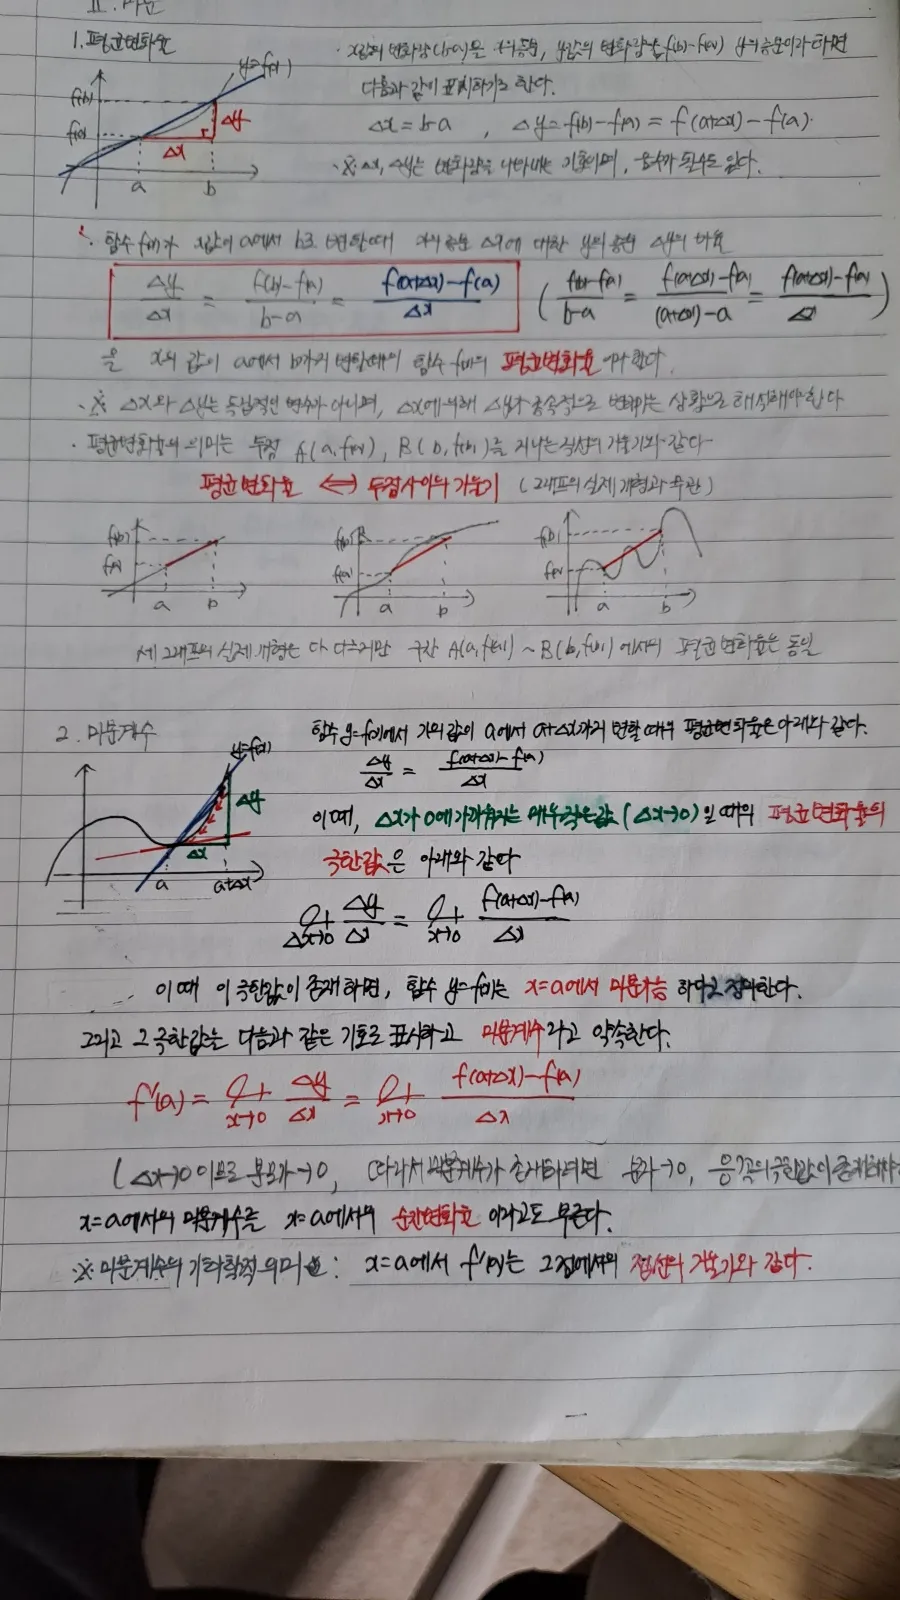 II. 미분
1. 평균변화율
y=f(x)
f(b)
f(a)
Δy
Δx
a b
· x값의 변화량(b-a)을 x의 증분, y값의 변화량 f(b)-f(a) y의 증분이라 하면
다음과 같이 표시하기도 한다.
Δx = b-a , Δy = f(b)-f(a) = f(a+Δx)-f(a).
·※ Δx, Δy는 변화량을 나타내는 기호이며, 음수가 될수도 있다.
· 함수 f(x)가 x값이 a에서 b로 변할때 x의 증분 Δx에 대한 y의 증분 Δy의 비율
Δy/Δx = f(b)-f(a)/b-a = f(a+Δx)-f(a)/Δx ( f(b)-f(a)/b-a = f(a+Δx)-f(a)/(a+Δx)-a = f(a+Δx)-f(a)/Δx )
을 x의 값이 a에서 b까지 변할때의 함수 f(x)의 평균변화율 이라 한다.
·※ Δx와 Δy는 독립적인 변수가 아니며, Δx에 의해 Δy가 종속적으로 변하는 상황으로 해석해야한다
· 평균변화율의 의미는 두점 A(a, f(a)), B(b, f(b))를 지나는 직선의 기울기와 같다
평균변화율 ⟺ 두점사이의 기울기 (그래프의 실제 개형과 무관)
f(b) f(b) f(b)
f(a) f(a) f(a)
a b a b a b
세 그래프의 실제 개형은 다 다르지만 구간 A(a, f(a)) ~ B(b, f(b)) 에서의 평균변화율은 동일
2. 미분계수
y=f(x)
Δy
Δx
a a+Δx
함수 y=f(x)에서 x의 값이 a에서 a+Δx까지 변할 때의 평균변화율은 아래와 같다.
Δy/Δx = f(a+Δx)-f(a)/Δx
이때, Δx가 0에 가까워지는 매우 작은 값 (Δx→0) 일 때의 평균변화율의
극한값은 아래와 같다
lim Δx→0 Δy/Δx = lim x→0 f(a+Δx)-f(a)/Δx
이때 이 극한값이 존재하면, 함수 y=f(x)는 x=a에서 미분가능 하다고 정의한다.
그리고 그 극한값을 다음과 같은 기호로 표시하고 미분계수 라고 약속한다.
f'(a) = lim x→0 Δy/Δx = lim x→0 f(a+Δx)-f(a)/Δx
(Δx→0 이므로 분모가→0, 따라서 미분계수가 존재하려면 분자→0,
x=a에서의 미분계수를 x=a에서의 순간변화율 이라고도 부른다.
※ 미분계수의 기하학적 의미 : x=a에서 f'(a)는 그 점에서의 접선의 기울기와 같다.